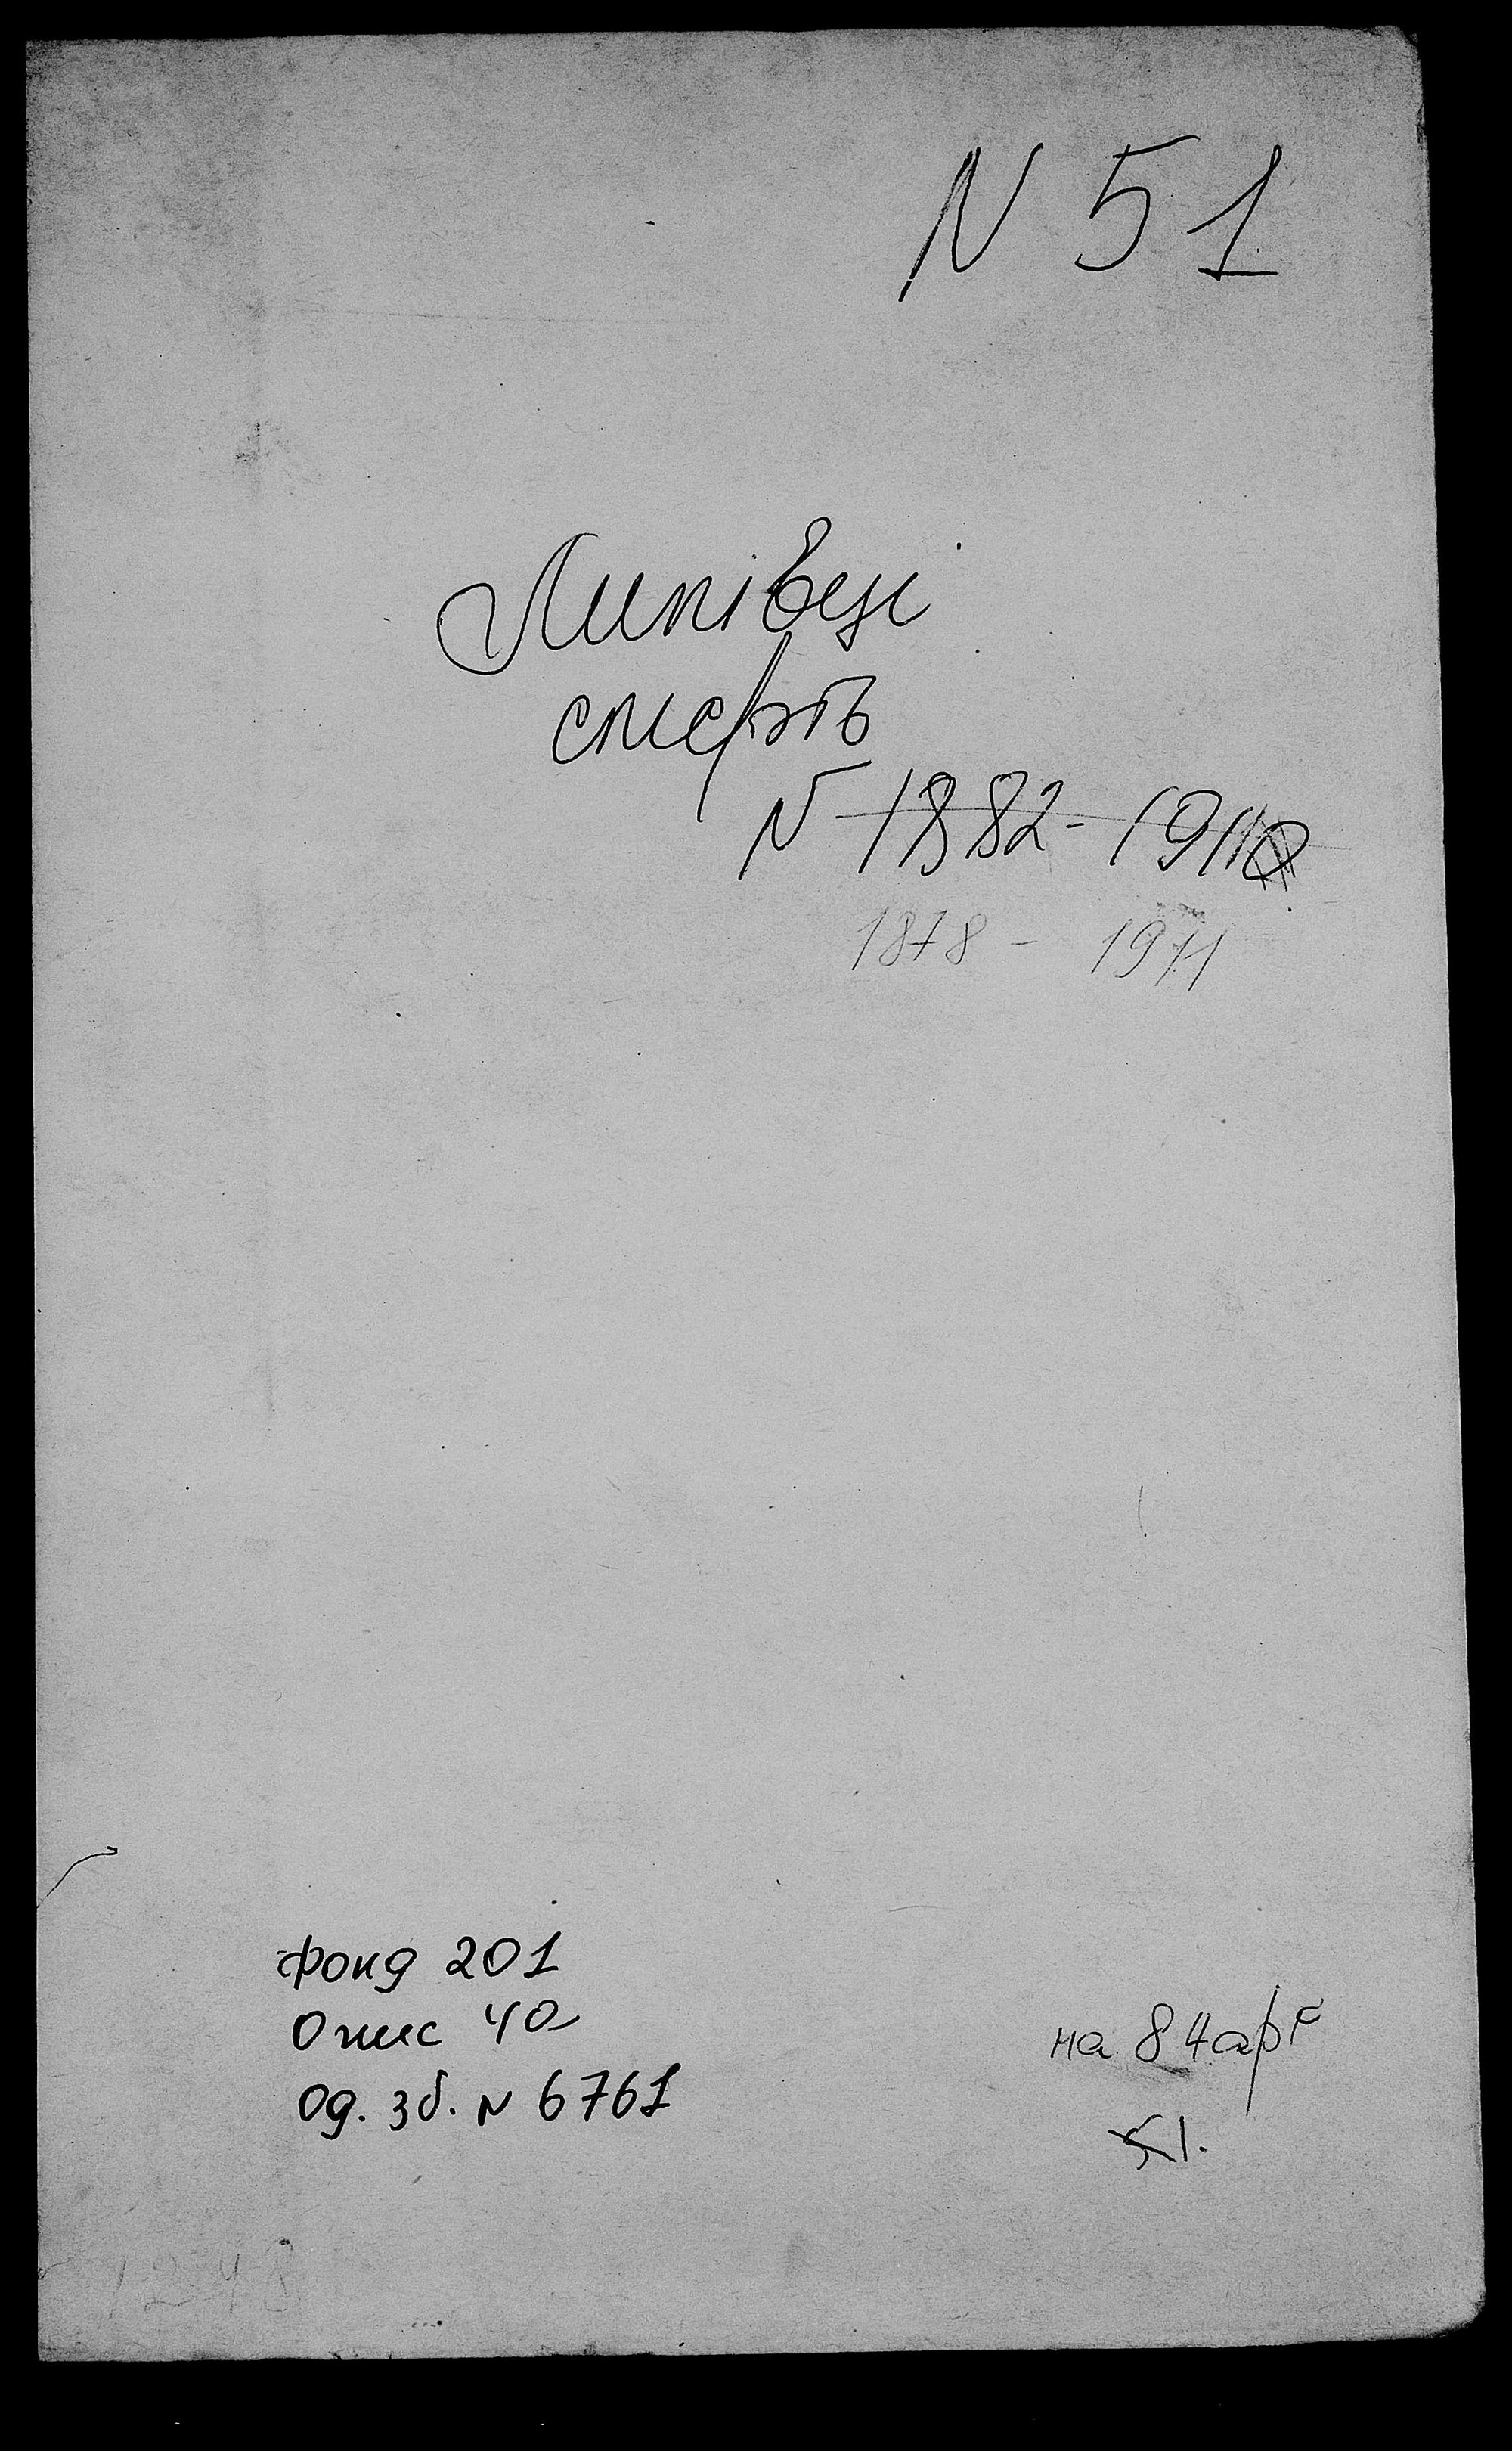 N 51
Липівці
смерть
N 1882-1911
1878 - 1911
фонд 201
Опис 4а
Од. зб. N 6761
на 84 арк
51.
1248